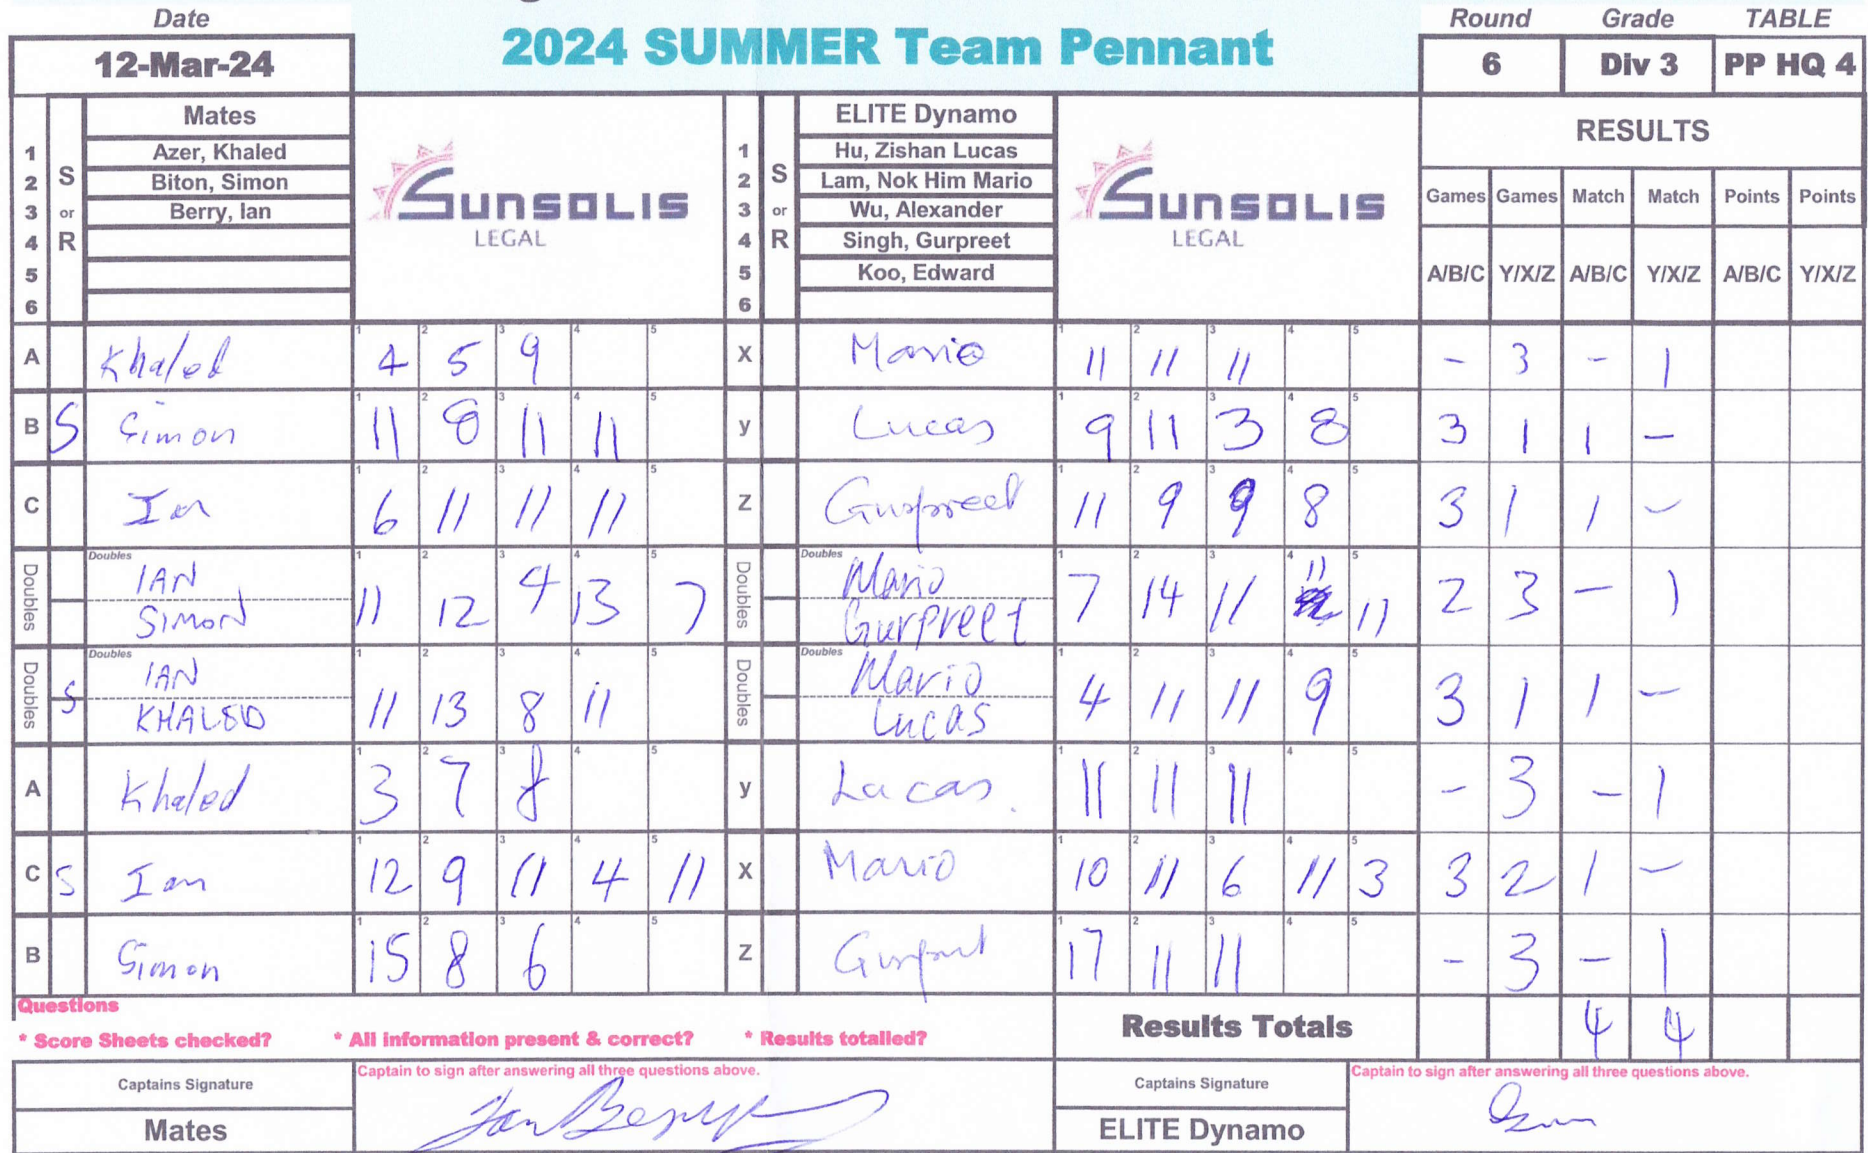 Date
12-Mar-24
2024 SUMMER Team Pennant
Round Grade TABLE
6 Div 3 PP HQ 4
Mates
1 Azer, Khaled
2 Biton, Simon
3 Berry, Ian
4
5
6
S or R
SUNSOLIS
LEGAL
ELITE Dynamo
1 Hu, Zishan Lucas
2 Lam, Nok Him Mario
3 Wu, Alexander
4 Singh, Gurpreet
5 Koo, Edward
6
S or R
SUNSOLIS
LEGAL
RESULTS
Games Games Match Match Points Points
A/B/C Y/X/Z A/B/C Y/X/Z A/B/C Y/X/Z
A Khaled 4 5 9 X Mario 11 11 11 - 3 - 1
B S Simon 11 8 11 11 y Lucas 9 11 3 8 3 1 1 -
C Ian 6 11 11 11 Z Gurpreet 11 9 9 8 3 1 1 -
Doubles Doubles IAN SIMON 11 12 4 13 7 Doubles Doubles Mario Gurpreet 7 14 11 11 11 2 3 - 1
Doubles S Doubles IAN KHALED 11 13 8 11 Doubles Doubles Mario Lucas 4 11 11 9 3 1 1 -
A Khaled 3 7 8 y Lucas. 11 11 11 - 3 - 1
C S Ian 12 9 11 4 11 X Mario 10 11 6 11 3 3 2 1 -
B Simon 15 8 6 Z Gurpreet 17 11 11 - 3 - 1
Questions
* Score Sheets checked? * All information present & correct? * Results totalled?
Results Totals 4 4
Captains Signature
Captain to sign after answering all three questions above.
Mates
Ian Berry
Captains Signature
Captain to sign after answering all three questions above.
ELITE Dynamo